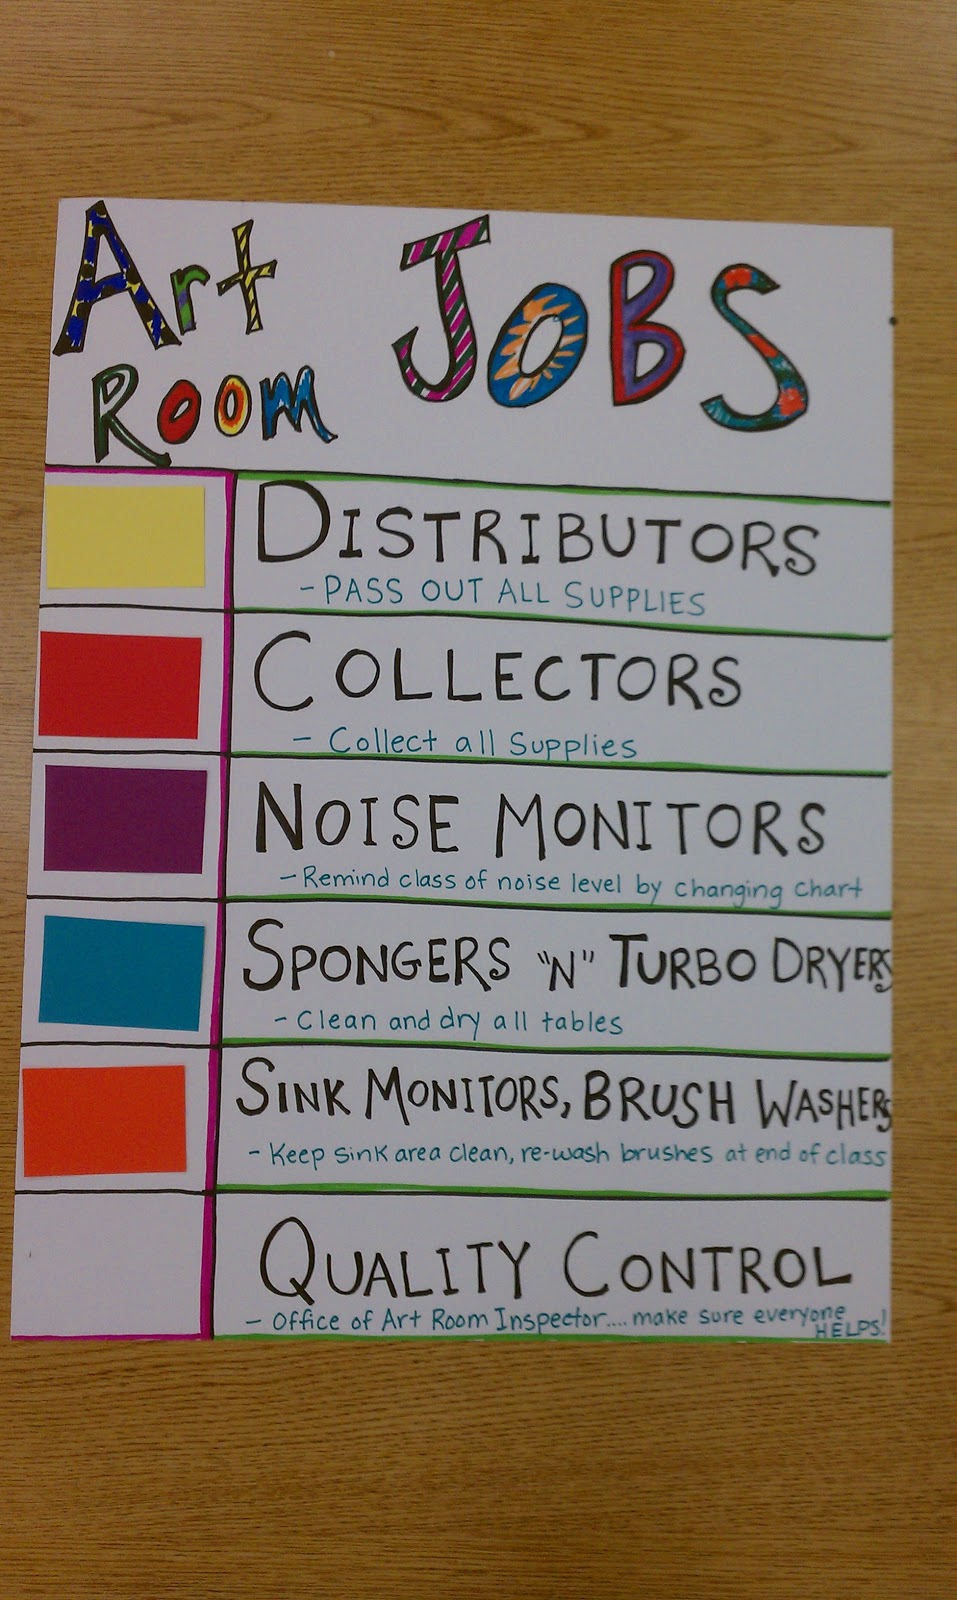 Art JOBS
ROOM
DISTRIBUTORS
- PASS OUT ALL SUPPLIES
COLLECTORS
- Collect all Supplies
NOISE MONITORS
- Remind class of noise level by changing chart
SPONGERS "N" TURBO DRYERS
- Clean and dry all tables
SINK MONITORS, BRUSH WASHERS
- Keep sink area clean, re-wash brushes at end of class
QUALITY CONTROL
- Office of Art Room Inspector.... make sure everyone
HELPS!